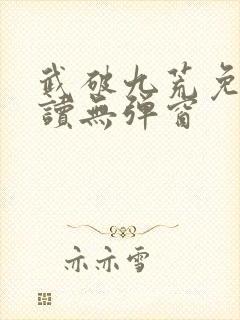 武破九荒免
讀無彈窗
亦亦雪